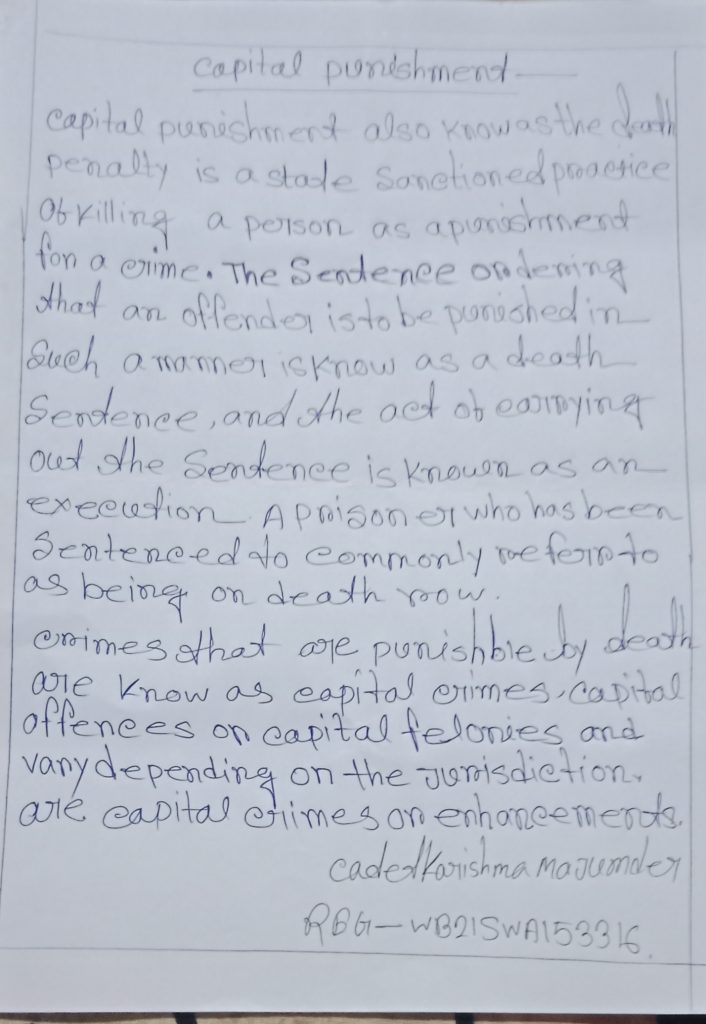 Capital punishment
Capital punishment also know as the death
penalty is a state Sanctioned practice
Of killing a person as a punishment
for a crime. The Sentence ordering
that an offender is to be punished in
Such a manner is know as a death
Sentence, and the act of carrying
out the Sentence is known as an
execution. A prisoner who has been
Sentenced to commonly referr to
as being on death row.
crimes that are punishble by death
are know as capital crimes, capital
offences or capital felonies and
vary depending on the jurisdiction.
are capital crimes or enhancements.
cadet Karishma Majumder
RBG-WB21SWA153316.